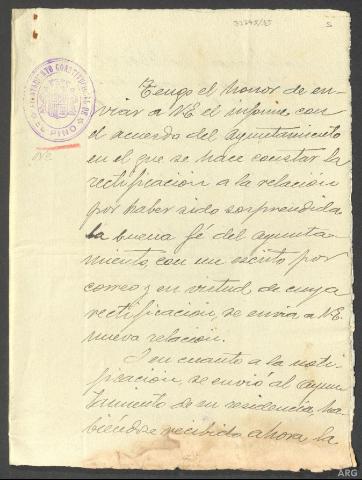 AYUNTAMIENTO CONSTITUCIONAL DE
EL PINO
5
Tengo el honor de en-
viar a VE el informe con
el acuerdo del ayuntamiento
en el que se hace constar la
rectificación a la relación
por haber sido sorprendida
la buena fé del ayunta-
miento, con un escrito por
correo y en virtud de cuya
rectificación, se envia a VE
nueva relación.
I en cuanto a la noti-
ficación, se envió al ayun-
tamiento de su residencia, ha-
biendose recibido ahora la
ARG